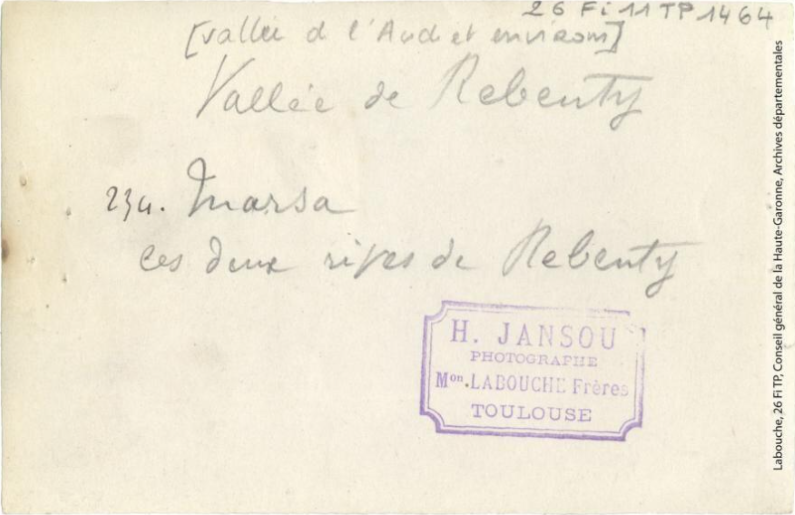 26 Fi 11 TP 1464
[vallée d l'Aude et environs]
Vallée de Rebenty
234. Marsa
Les deux rives de Rebenty
H. JANSOU
PHOTOGRAPHE
Mon. LABOUCHE Frères
TOULOUSE
Labouche, 26 Fi TP, Conseil général de la Haute-Garonne, Archives départementales